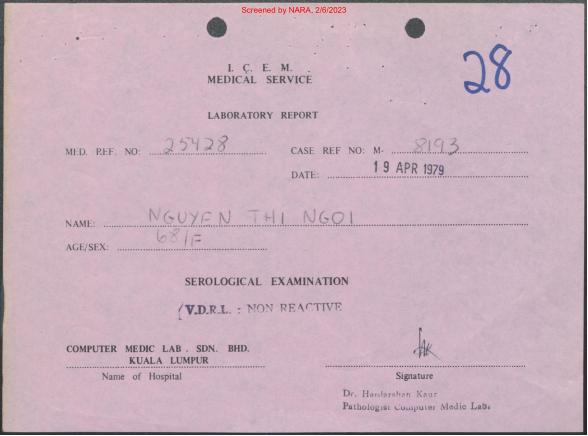 Screened by NARA, 2/6/2023
28
I. C. E. M.
MEDICAL SERVICE
LABORATORY REPORT
MED. REF. NO: 25428 CASE REF NO: M- 8193
DATE: 19 APR 1979
NAME: NGUYEN THI NGOI
AGE/SEX: 68/F
SEROLOGICAL EXAMINATION
(V.D.R.L. : NON REACTIVE
COMPUTER MEDIC LAB. SDN. BHD.
KUALA LUMPUR
Name of Hospital Signature
Dr. Hardarshan Kaur
Pathologist Computer Medic Lab.